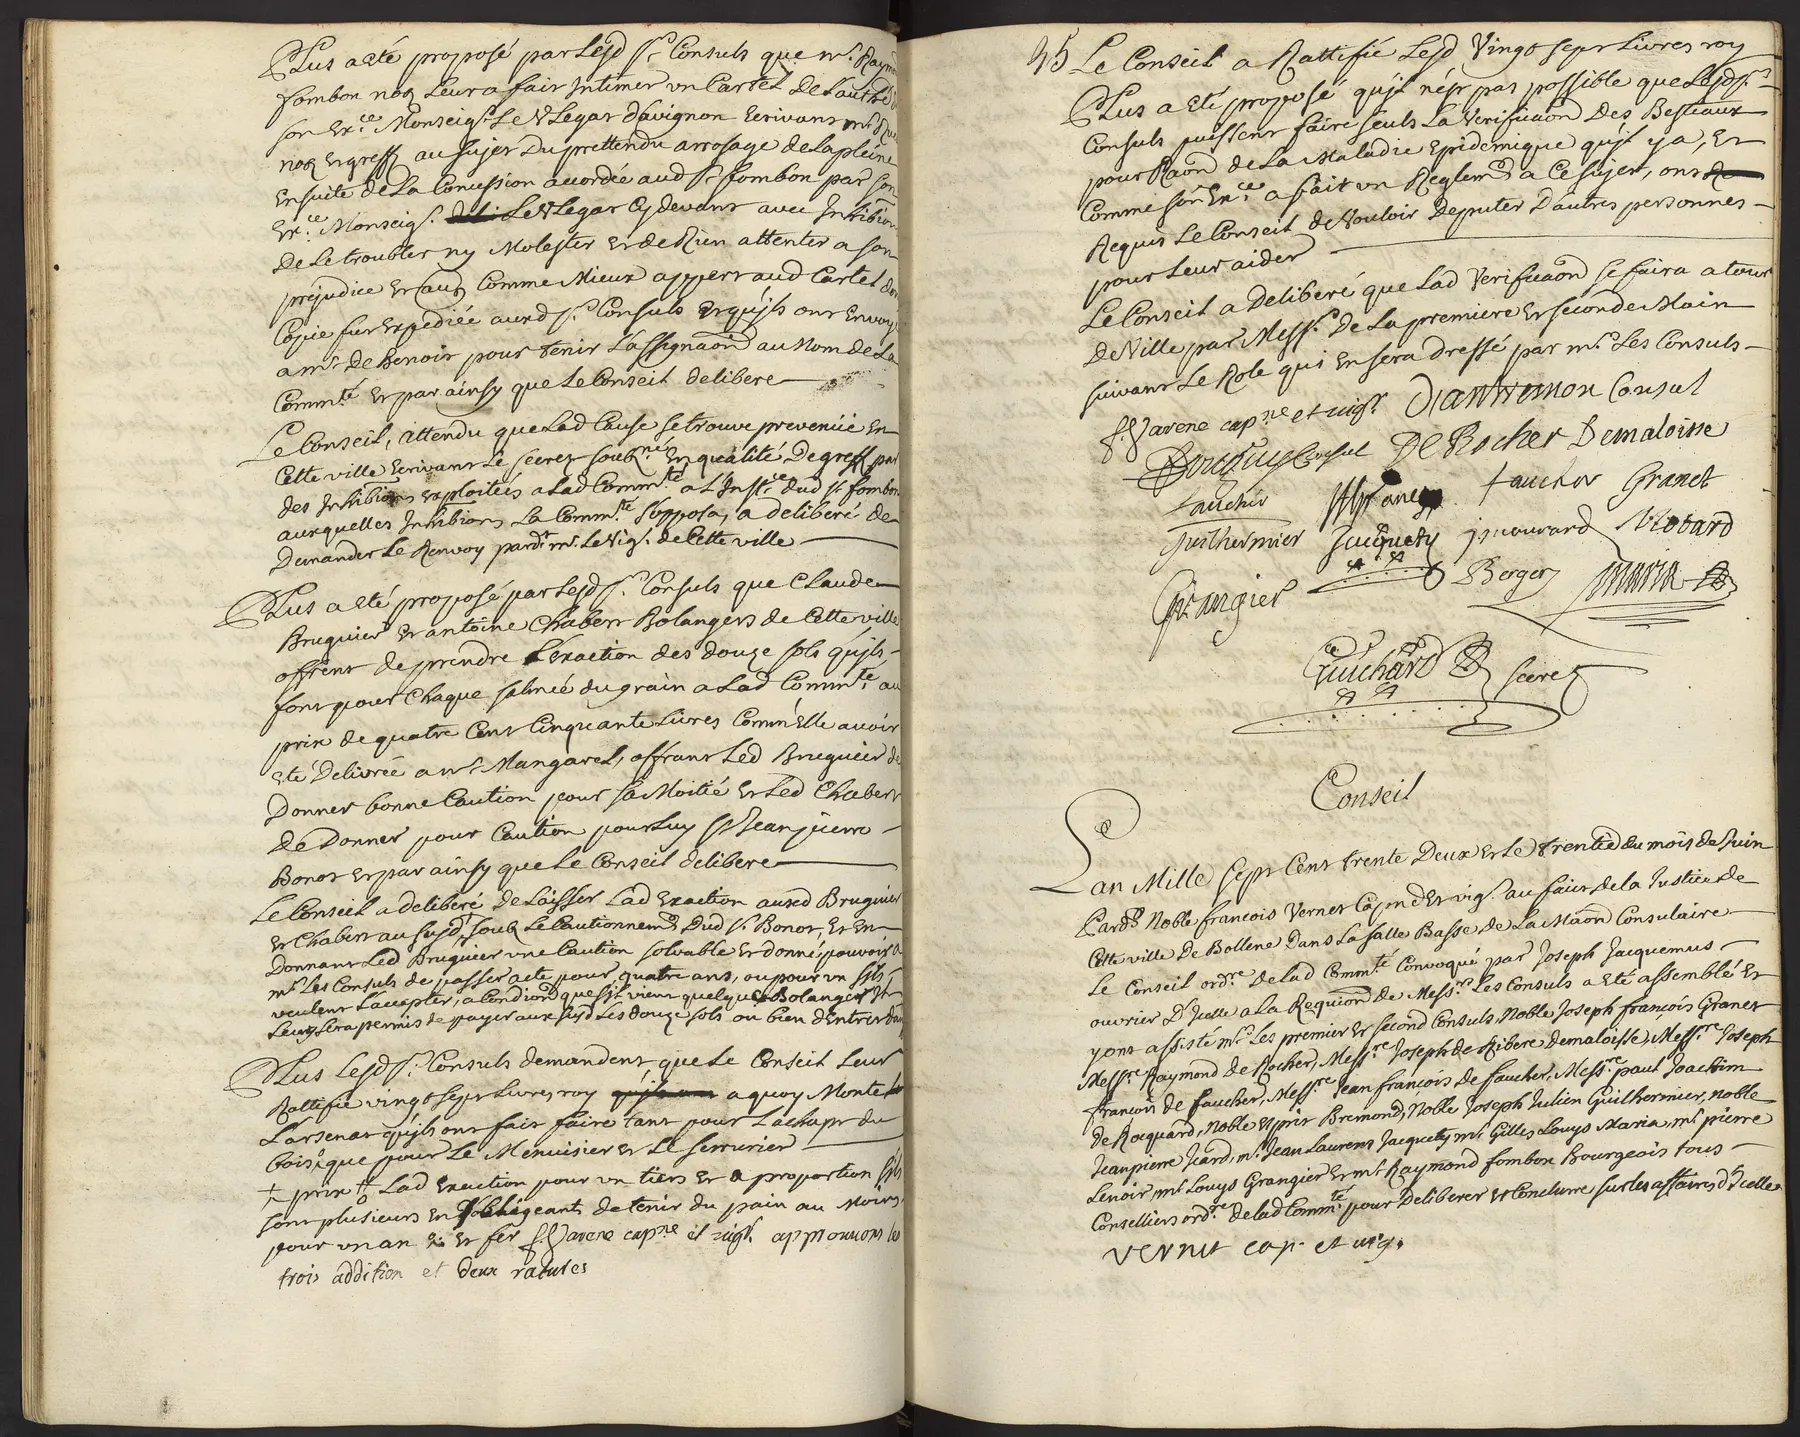 Plus a eté proposé par Lesd srs Consuls que mr Raym
fombon nore Leur a fair Intimer un Cartel De L'autre
son Exce Monseigr Le V Legat d'avignon Ecrivant mr
nore Et greff au sujet Du prettendu arrosage de la pleine
Ensuite de La Concession accordée aud sr fombon par son
Exce Monseigr Le V Legat Cy devant avec Inhibions
De Le troubler ny Molester Et de Rien attenter a son
prejudice Et Comme Mieux appert aud Cartel dont
Copie fut Expediée auxd srs Consuls Et qu'jls ont Envoyé
a mr De Benoir pour tenir L'assignaon au Nom de La
Commté Et par ainsy que Le Conseil delibere
Le Conseil, attendu que Lad Cause se trouve prevenüe En
Cette ville Ecrivant Le secret soubzné En qualité De greff par
des Inhibions exploitées a Lad Commté a L'Instce dud sr fombon
auxquelles Inhibions La Commté s'opposa, a deliberé de
Demander Le Renvoy pardt mr Le Vigr de Cette ville
Plus a eté proposé par Lesd srs Consuls que Claude
Bruguier Et antoine Chabert Bolangers de Cette ville
offrent de prendre L'Exaction des douze sols qu'jls
font pour Chaque salmée du grain a Lad Commté au
prix de quatre Cent Cinquante Livres Comm'Elle avoit
Eté Delivrée a mr Mangarel, offrant Led Bruguier de
Donner bonne Caution pour sa Moitié Et Led Chabert
De Donner pour Caution pour Luy sr Jean pierre
Bonot Et par ainsy que Le Conseil delibere
Le Conseil a deliberé de Laisser Lad Exaction auxd Bruguier
Et Chabert au susd soubz Le Cautionnemt Dud sr Bonot, Et En
Donnant Led Bruguier une Caution solvable Et donné pouvoir a
mrs Les Consuls de passer acte pour quatre ans, ou pour un s'jls
veulent L'accepter, a Condion que s'jl vient quelque Bolanger Jl
Leur sera permis de payer aux susd Les douze sols ou bien d'Entrer dans
Plus Lesd srs Consuls demandent que Le Conseil Leur
Rattifie vingt sept Livres roy a quoy Monte
L'arsenat qu'jls ont fait faire tant pour L'achapt du
bois que pour Le Menuisier Et Le serrurier
+ prix ‡ Lad Exaction pour un tiers Et a proportion s'jls
sont plusieurs En s'obligeant de tenir du pain au Moins
pour un an Et fer f Varene capne et vigr approuvons les
trois addition et deux ratures
35 Le Conseil a Rattifié Lesd Vingt sept Livres roy
Plus a eté proposé qu'jl n'est pas possible que Lesd srs
Consuls puissent faire seuls La Verificaon Des Bestiaux
pour Raon de La Maladie Epidemique qu'jl y a, Et
Comme son Exce a fait un Reglemt a Ce sujet, ont
Requis Le Conseil de Vouloir Deputer D'autres personnes
pour Leur aider
Le Conseil a Deliberé que Lad Verificaon se faira a tour
De Ville par Messrs De La premiere Et seconde Main
suivant Le Role qui En sera dressé par mrs Les Consuls
f. Varene capne et vigr Consul
Consul De Rocher Demaloisse
faucher faucher Granet
Guilhermier Jacquety Rovard
Grangier Berger Maria
Guichard secret
Conseil
L'an Mille sept Cent trente Deux Et Le trentie du mois de Juin
Pardt Noble francois Vernet Cap̄ne Et vigr au fait de la Justice de
Cette ville De Bollene Dans La salle Basse de La Maon Consulaire
Le Conseil ordre De Lad Commté Convoqué par Joseph Jacquemus
ouvrier Dt Jcelle a La Requion De Messrs Les Consuls a eté assemblé Et
y ont assisté mrs Les premier Et second Consuls, Noble Joseph françois Granet
Messre Raymond de Rocher, Messre Joseph de Ribere demaloisse, Messre Joseph
françois de faucher, Messre Jean françois De faucher, Messre paul Joachim
de Rocquard, Noble Esprit Bremond, Noble Joseph Julien Guilhermier, noble
Jean pierre Jcard, mr Jean Laurens Jacquety, mr Gilles Louys Maria, mr pierre
Lenoir, mr Louys Grangier Et mr Raymond fombon Bourgeois tous
Conseillers ordre de Lad Commté pour Deliberer Et Conclurre sur Les affaires d'Jcelle
vernet cap. et vig.